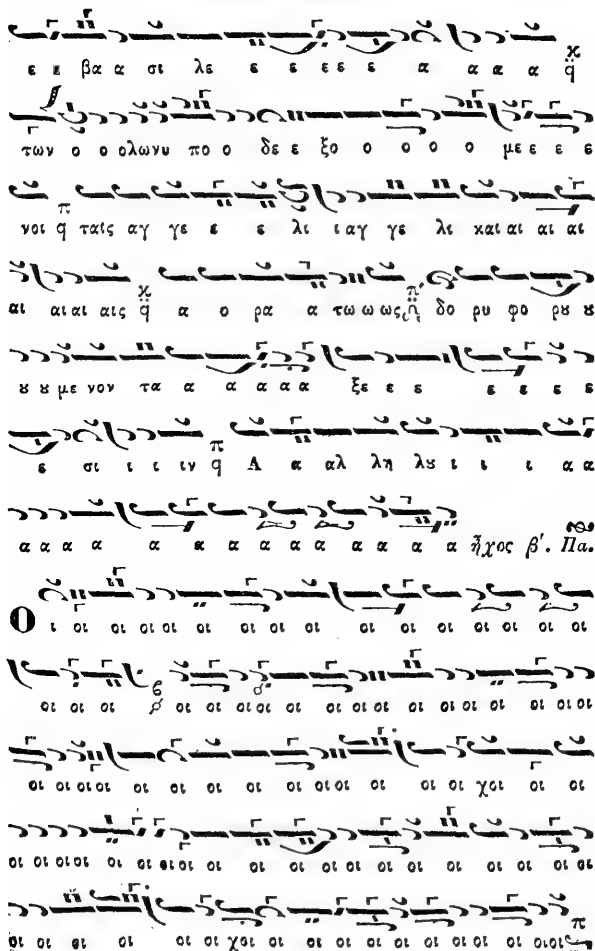 ε ε βα α σι λε ε ε ε ε ε α α α α ϙ
των ο ο ολωνυ πο ο δε ε ξο ο ο ο ο με ε ε ε
νοι ϙ ταῖς αγ γε ε ε λι ι αγ γε λι και αι αι αι
αι αι αι αις ϙ α ο ρα α τω ω ως δο ρυ φο ρȣ ȣ
ȣ ȣ με νον τα α α α α α ξε ε ε ε ε ε ε
ε σι ι ι ιν ϙ Α α αλ λη λȣ ι ι ι α α
α α α α α α α α α α α α α α ἦχος β′. Πα.
Ο ι οι οι οι οι οι οι οι οι οι οι οι οι οι οι
οι οι οι οι οι οι οι οι οι οι οι οι οι οι οι οι οι
οι οι οι οι οι οι οι οι οι οι οι οι οι οι χοι οι οι
οι οι οι οι οι οι οι οι οι οι οι οι οι οι οι οι οι
οι οι οι οι οι οι χοι οι οι οι οι οι οι οι οι